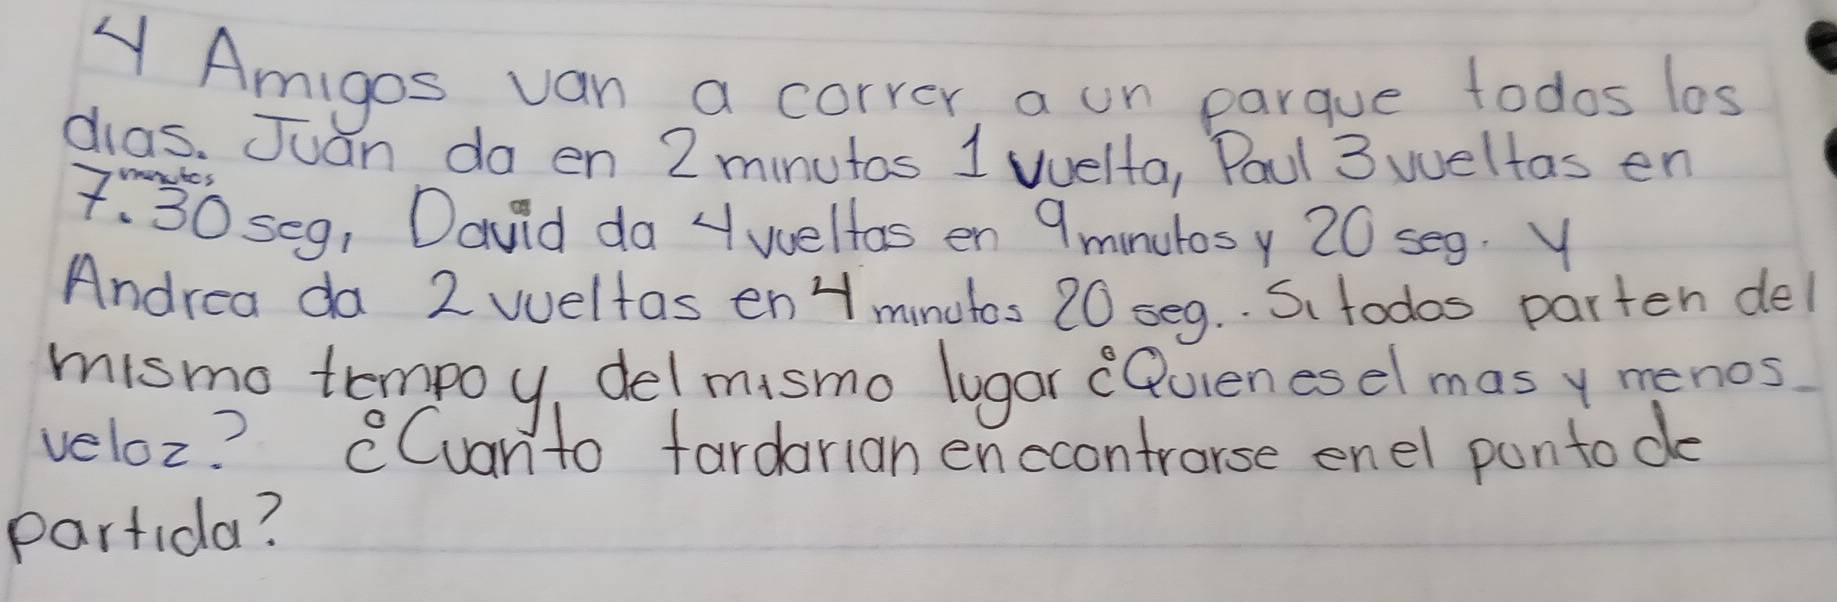 4 Amigos van a correr a un parque todos los
dias. Juan da en 2 minutos 1 vuelta, Paul 3 vueltas en
7. minutos 30 seg, David da 4 vueltas en 9 minutos y 20 seg. y
Andrea da 2 vueltas en 4 minutos 20 seg.. Si todos parten del
mismo tiempo y del mismo lugar ¿Quien es el mas y menos
veloz? ¿Cuanto tardarian enccontrarse en el punto de
partida?